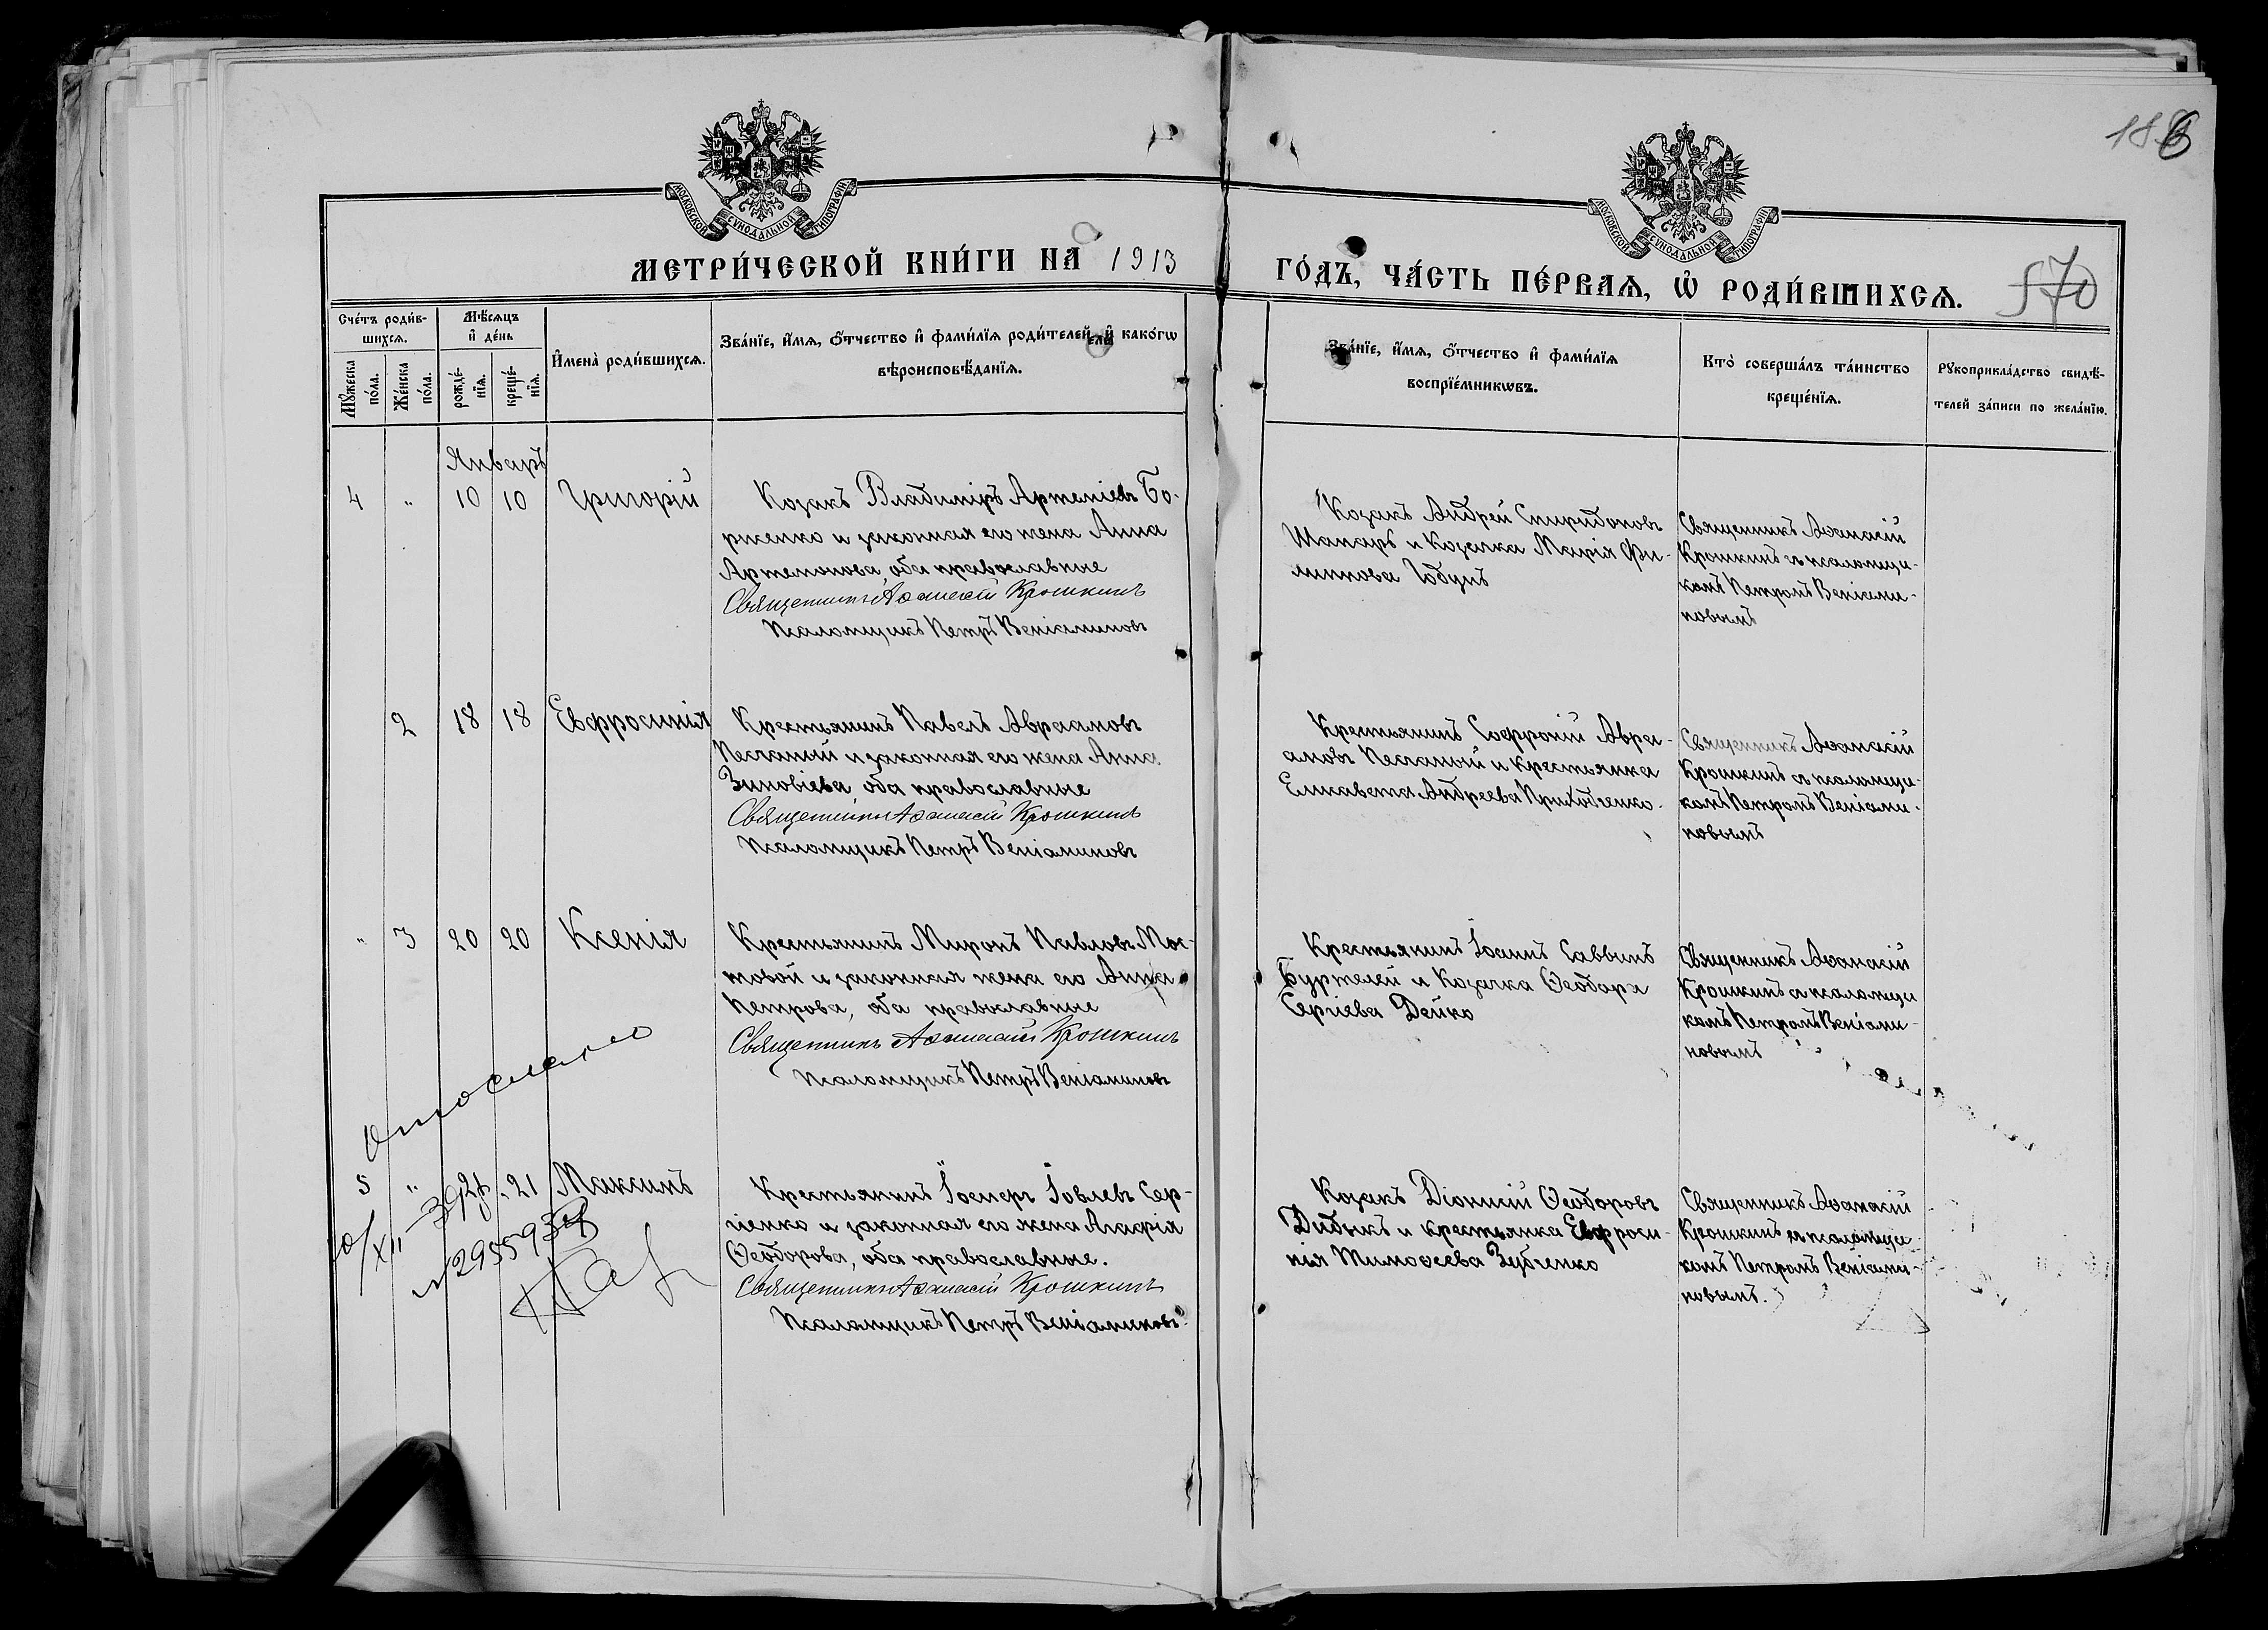 186
МОСКОВСКОЙ СУНОДАЛЬНОЙ ТИПОГРАФІИ
МОСКОВСКОЙ СУНОДАЛЬНОЙ ТИПОГРАФІИ
МЕТРИ́ЧЕСКОЙ КНИ́ГИ НА 1913
ГО́ДЪ, ЧА́СТЬ ПЕ́РВАЯ, Ѡ РОДИ́ВШИХСЯ.
170
Сче́тъ роди́в-
шихся.
Мѣ́сяцъ
и҆ де́нь
И҆мена̀ роди́вшихся.
Зва́нїе, и҆́мя, ѻ҆́тчество и҆ фами́лїя роди́телей, и҆ како́гѡ
вѣроисповѣ́данїя.
Мꙋ́жеска
по́ла.
Же́нска
по́ла.
рожде́-
нїя.
креще́-
нїя.
Зва́нїе, и҆́мя, ѻ҆́тчество и҆ фами́лїя
воспрїе́мникѡвъ.
Кто̀ соверша́лъ та́инство
креще́нїя.
Рꙋкоприкла́дство свидѣ́-
телей за́писи по жела́нїю.
Январь
4 " 10 10 Григорій
Козакъ Владиміръ Артеміевъ Бо-
рженко и законная его жена Анна
Артемонова, оба православные
Священникъ Аѳанасій Крошкинъ
Псаломщикъ Петръ Веніаминовъ
Козакъ Андрей Спиридоновъ
Шапаръ и Козачка Марія Фи-
липпова Гобунъ
Священникъ Аѳанасій
Крошкинъ съ псаломщи-
комъ Петромъ Веніами-
новымъ
2 18 18 Евфросинія
Крестьянинъ Павелъ Авраамовъ
Песчаный и законная его жена Анна
Зиновіева, оба православные
Священникъ Аѳанасій Крошкинъ
Псаломщикъ Петръ Веніаминовъ
Крестьянинъ Софроній Авра-
амовъ Песчаный и крестьянка
Елисавета Андреева Приходченко.
Священникъ Аѳанасій
Крошкинъ съ псаломщи-
комъ Петромъ Веніами-
новымъ
" 3 20 20 Ксенія
Крестьянинъ Миронъ Павловъ Мос-
товой и законная жена его Анна
Петрова, оба православные
Священникъ Аѳанасій Крошкинъ
Псаломщикъ Петръ Веніаминовъ
Крестьянинъ Іоаннъ Саввинъ
Буртелей и Козачка Ѳеодора
Сергіева Дейко
Священникъ Аѳанасій
Крошкинъ съ псаломщи
комъ Петромъ Веніами-
новымъ
Отослано
5 " 21 21 Максимъ
Крестьянинъ Іосифъ Іовлевъ Сер-
гіенко и законная его жена Агафія
Ѳеодорова, оба православные.
Священникъ Аѳанасій Крошкинъ
Псаломщикъ Петръ Веніаминовъ
Козакъ Діонисій Ѳеодоровъ
Дибыкъ и крестьянка Евфроси-
нія Тимоѳеева Зубченко
Священникъ Аѳанасій
Крошкинъ съ псаломщи-
комъ Петромъ Веніами-
новымъ.